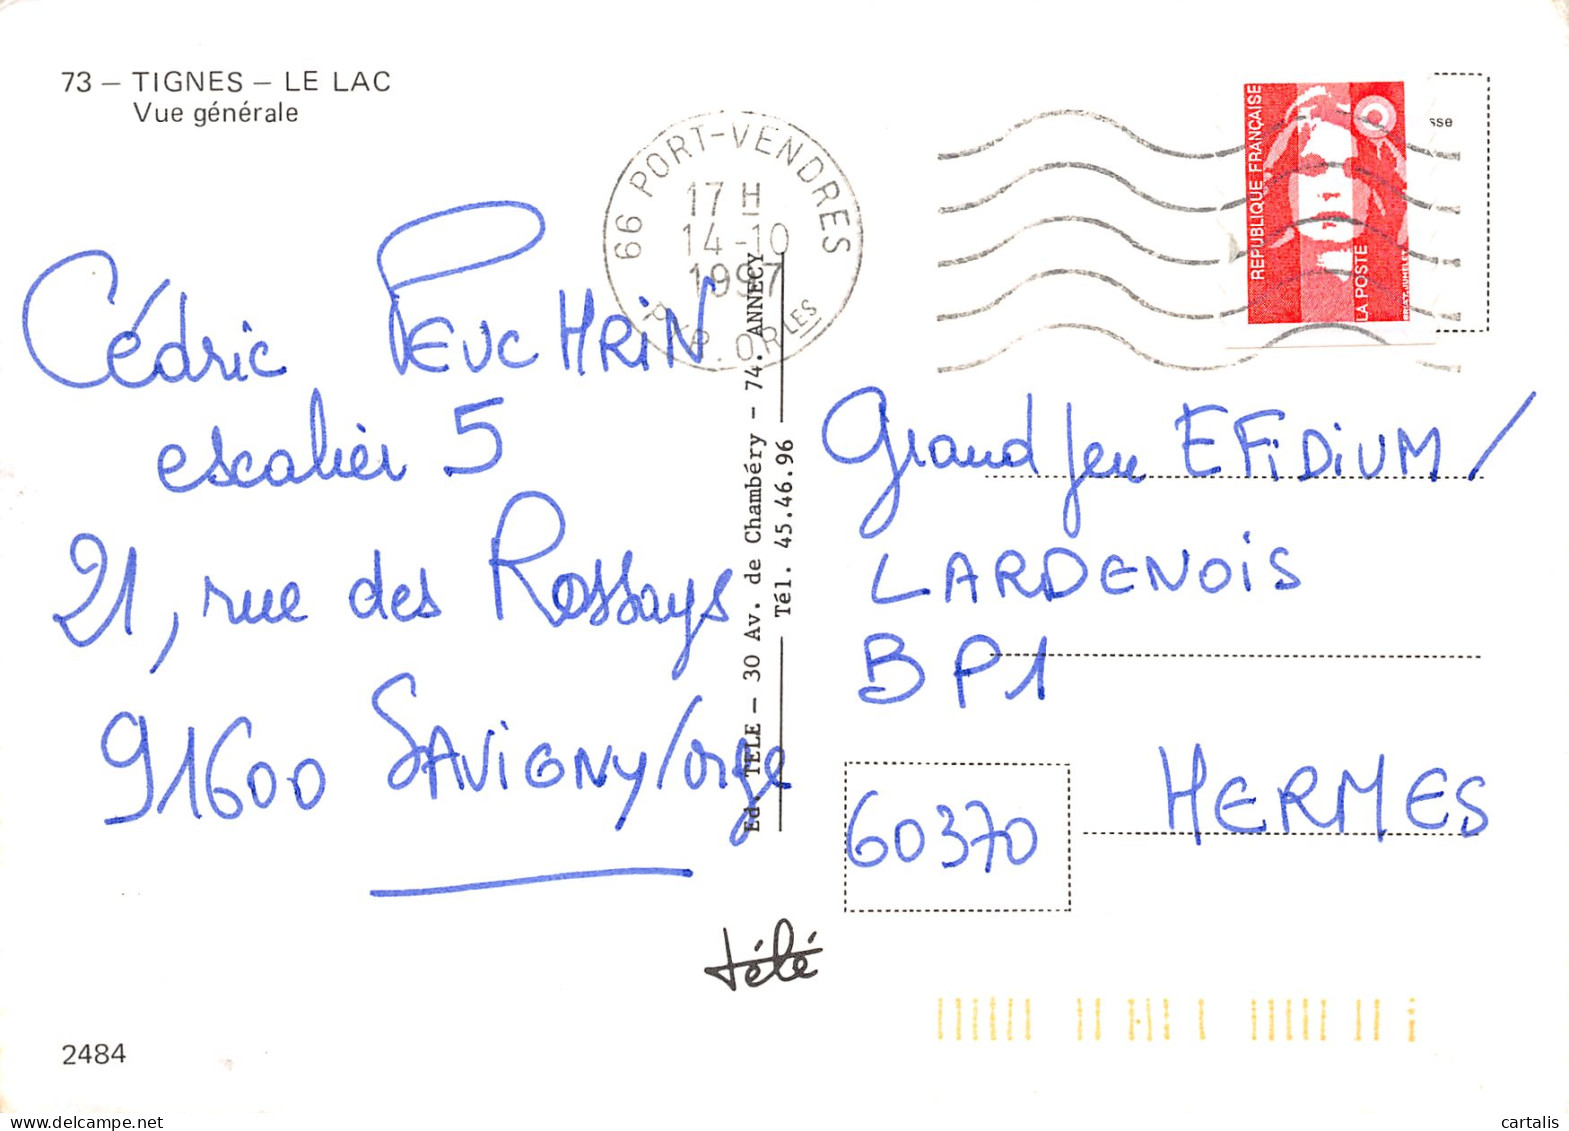 73 — TIGNES — LE LAC
Vue générale
66 PORT-VENDRES
17 H
14-10
1997
P.ORLES
REPUBLIQUE FRANÇAISE
LA POSTE
sse
Cédric PEUCHRIN
escalier 5
21, rue des Rossays
91600 SAVIGNY/Orge
Ed TELE — 30 Av. de Chambéry — 74. ANNECY
Tél. 45.46.96
Grand Jeu EFiDiUM/
LARDENOiS
BP1
60370 HERMES
télé
2484
cartalis